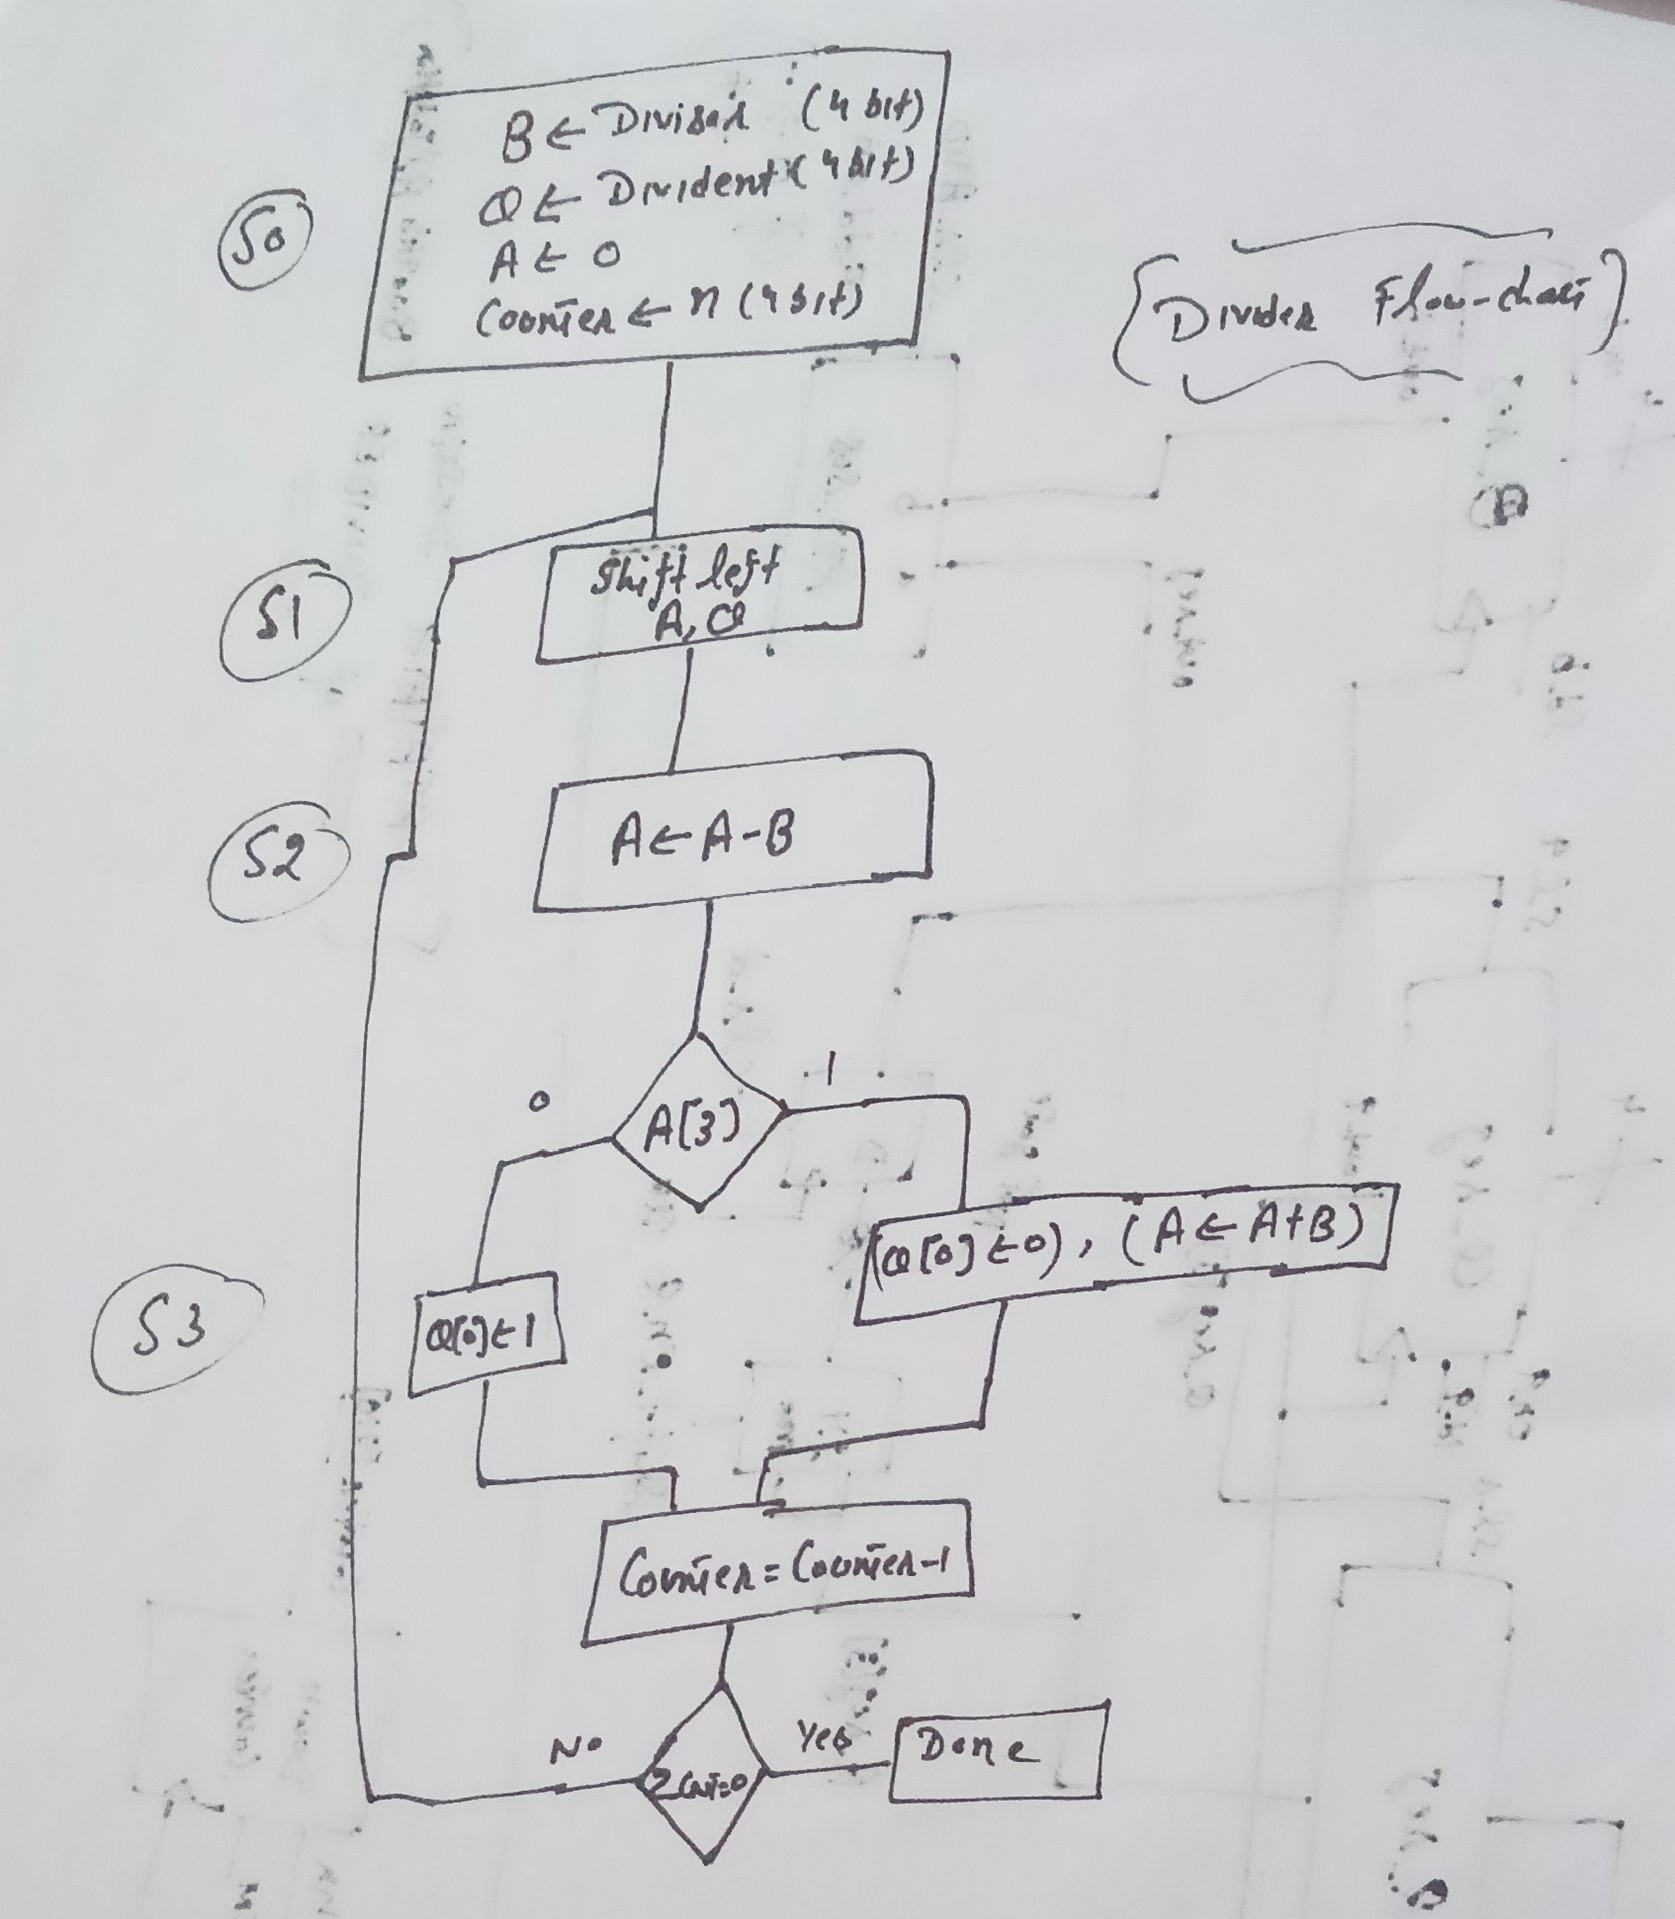 B ← Divisor (4 bit)
Q ← Divident (4 bit)
A ← 0
Counter ← n (4 bit)
S0
Divider Flow-chart
Shift left
A, Q
S1
A ← A-B
S2
A[3]
0
1
Q[0] ← 1
(Q[0] ← 0), (A ← A+B)
S3
Counter = Counter-1
No
Yes
Done